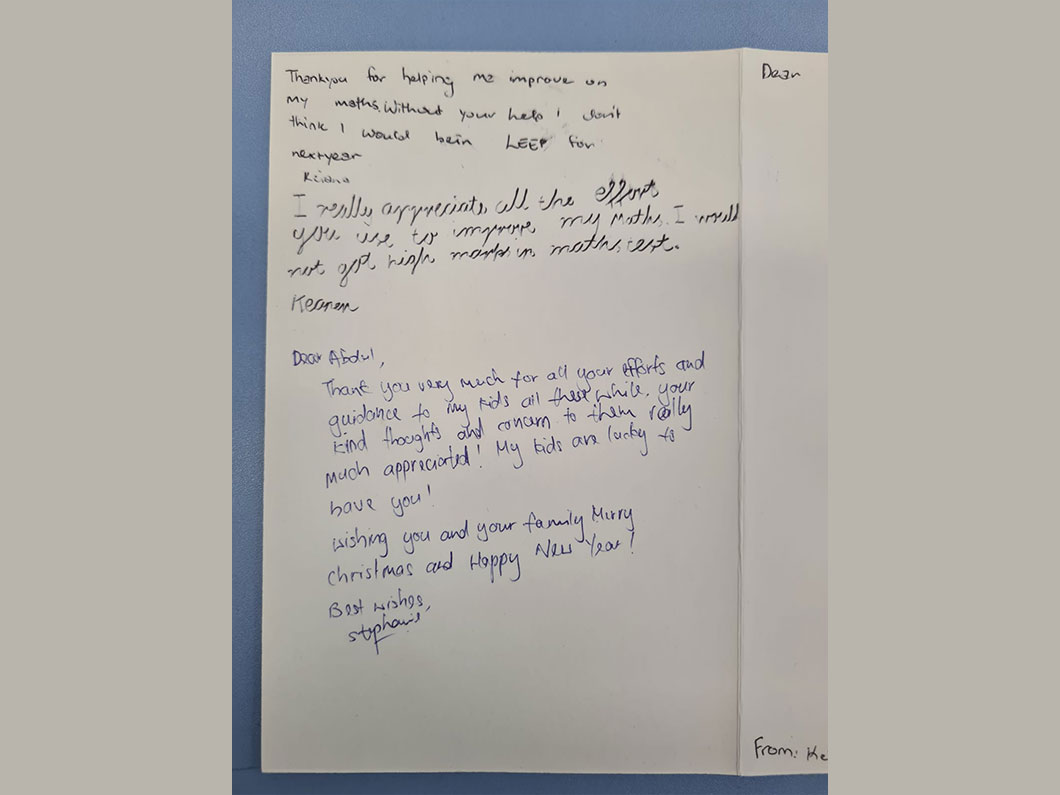 Thankyou for helping me improve on
my maths. Without your help I don't
think I would bein LEEP for
nextyear
I really appreciate all the effort
you use to improve my Maths. I would
not get high marks in maths test.
Keanen
Dear Abdul,
Thank you very much for all your efforts and
guidance to my kids all these while. your
kind thoughts and concern to them really
much appreciated! My kids are lucky to
have you!
wishing you and your family Merry
christmas and Happy New Year!
Best wishes,
stephanie
Dear
From: Ke